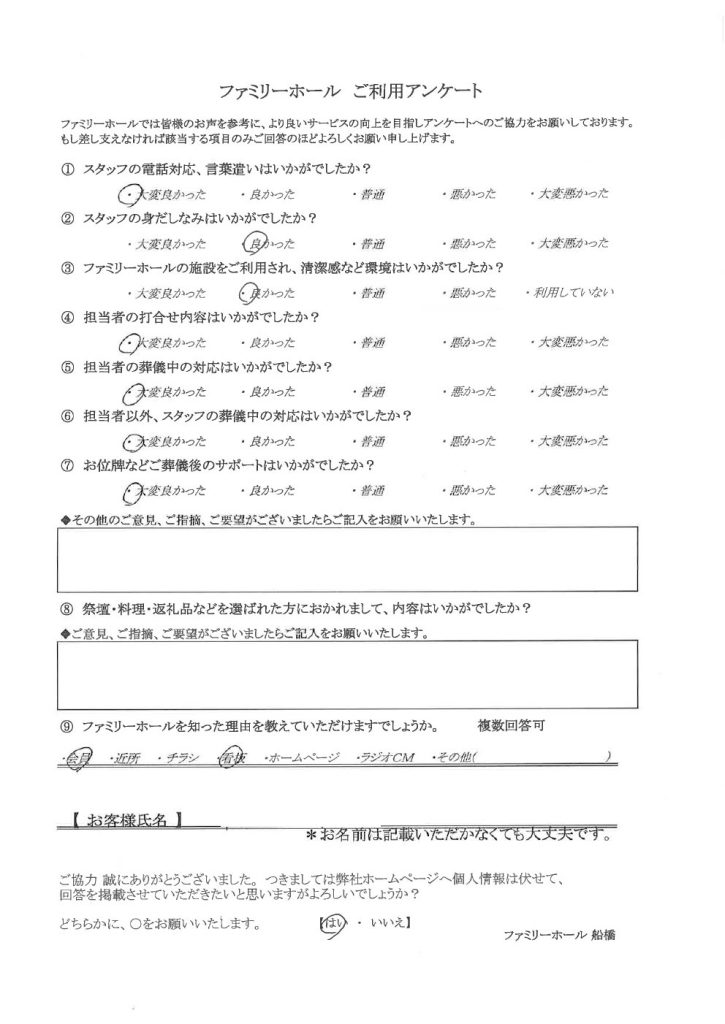 ファミリーホール ご利用アンケート
ファミリーホールでは皆様のお声を参考に、より良いサービスの向上を目指しアンケートへのご協力をお願いしております。
もし差し支えなければ該当する項目のみご回答のほどよろしくお願い申し上げます。
① スタッフの電話対応、言葉遣いはいかがでしたか？
・大変良かった ・良かった ・普通 ・悪かった ・大変悪かった
② スタッフの身だしなみはいかがでしたか？
・大変良かった ・良かった ・普通 ・悪かった ・大変悪かった
③ ファミリーホールの施設をご利用され、清潔感など環境はいかがでしたか？
・大変良かった ・良かった ・普通 ・悪かった ・利用していない
④ 担当者の打合せ内容はいかがでしたか？
・大変良かった ・良かった ・普通 ・悪かった ・大変悪かった
⑤ 担当者の葬儀中の対応はいかがでしたか？
・大変良かった ・良かった ・普通 ・悪かった ・大変悪かった
⑥ 担当者以外、スタッフの葬儀中の対応はいかがでしたか？
・大変良かった ・良かった ・普通 ・悪かった ・大変悪かった
⑦ お位牌などご葬儀後のサポートはいかがでしたか？
・大変良かった ・良かった ・普通 ・悪かった ・大変悪かった
◆その他のご意見、ご指摘、ご要望がございましたらご記入をお願いいたします。
⑧ 祭壇・料理・返礼品などを選ばれた方におかれまして、内容はいかがでしたか？
◆ご意見、ご指摘、ご要望がございましたらご記入をお願いいたします。
⑨ ファミリーホールを知った理由を教えていただけますでしょうか。 複数回答可
・会員 ・近所 ・チラシ ・看板 ・ホームページ ・ラジオCM ・その他( )
【 お客様氏名 】
＊お名前は記載いただかなくても大丈夫です。
ご協力 誠にありがとうございました。つきましては弊社ホームページへ個人情報は伏せて、
回答を掲載させていただきたいと思いますがよろしいでしょうか？
どちらかに、○をお願いいたします。 【はい ・ いいえ】
ファミリーホール 船橋